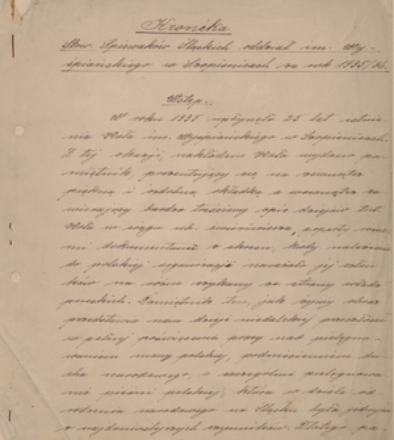 Kronika
Stow. Śpiewaków Śląskich oddział im. Wy-
spiańskiego w Szopienicach za rok 1935/36.
Wstęp.
W roku 1935 upłynęło 25 lat istnie-
nia Koła im. Wyspiańskiego w Szopienicach.
Z tej okazji, nakładem Koła wydano pa-
miętnik, prezentujący się na zewnątrz
piękną i ozdobną okładką, a wewnątrz za-
wierający bardzo treściwy opis dziejów tut.
Koła w ciągu ub. ćwierćwiecza, poparty
dokumentami z okresu, kiedy należenie
do polskiej organizacji narażało jej człon-
ków na różne ze strony władz
pruskich. Pamiętnik ten, jak żywy obraz
przedstawia nam dzieje niedalekiej przeszłości
w pełnej poświęcenia pracy nad pielęgno-
waniem mowy polskiej, podniesieniem du-
cha narodowego, a szczególnie pielęgnowa-
nie pieśni polskiej, która w dziele od-
rodzenia narodowego na Śląsku była jednym
z najdonioślejszych czynników. Dlatego pa-